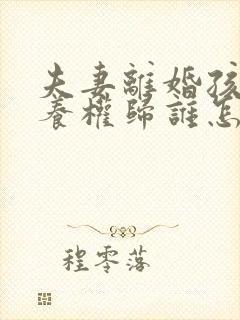 夫妻離婚孩
養權歸誰怎
程零落